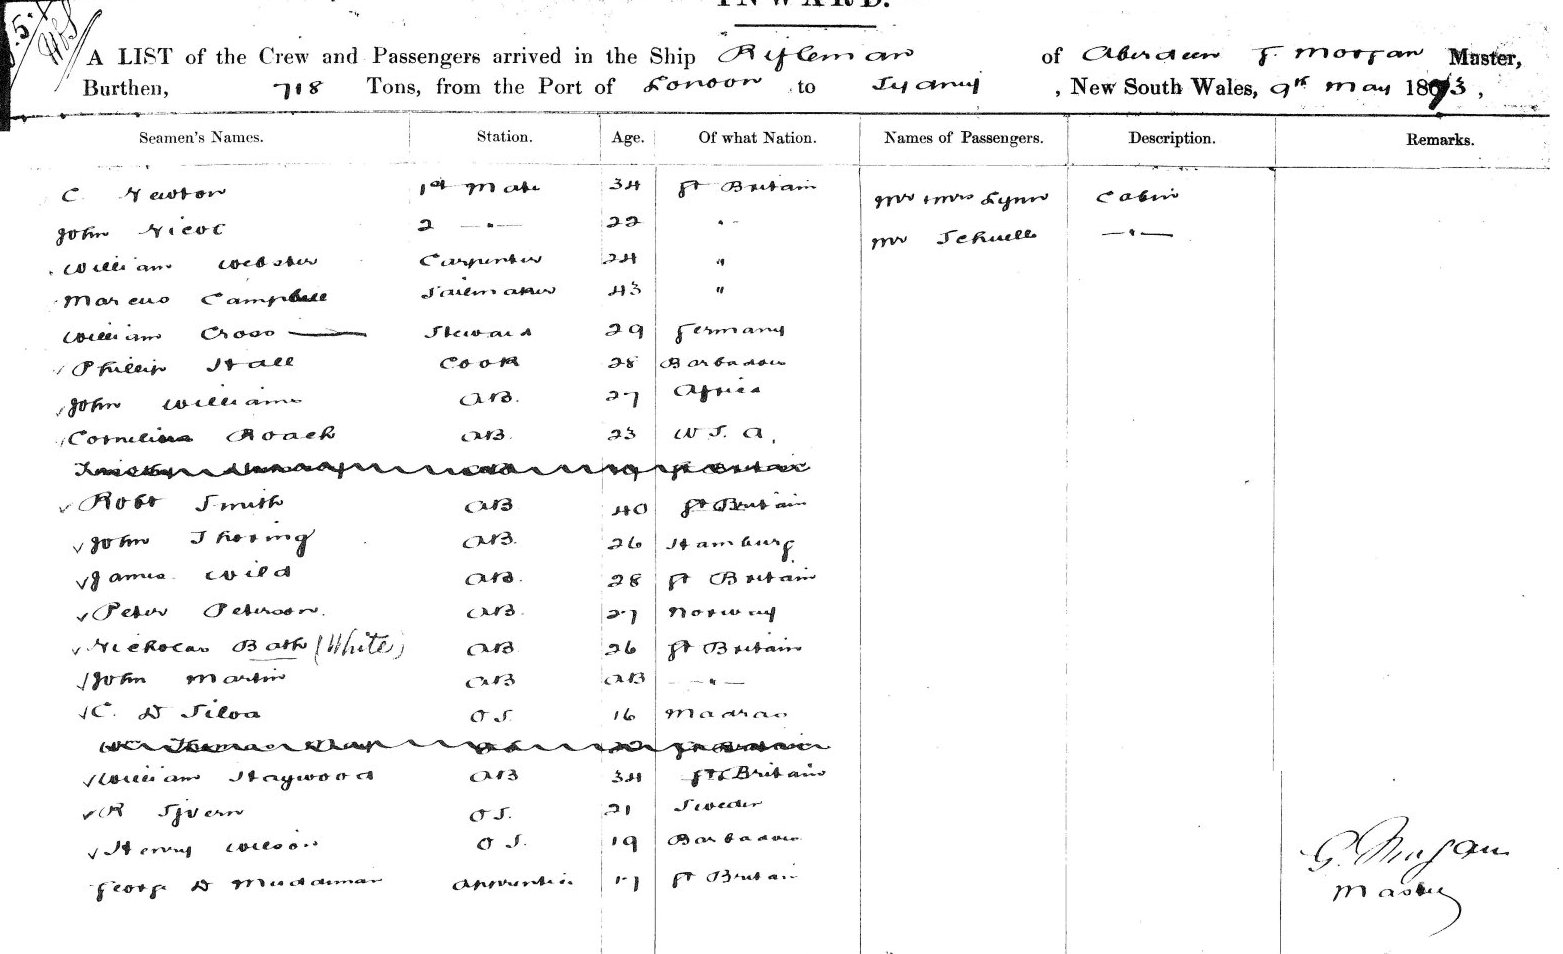 INWARD.
A LIST of the Crew and Passengers arrived in the Ship Rifleman of Aberdeen G. Morgan Master,
Burthen, 718 Tons, from the Port of London to Sydney, New South Wales, 9th May 1873,
Seamen's Names. Station. Age. Of what Nation. Names of Passengers. Description. Remarks.
C. Newton 1st Mate 34 Gt Britain Mr & Mrs Lynn Cabin
John Nicol 2 —"— 22 " Mr Schuell —"—
William Webster Carpenter 24 "
Marcus Campbell Sailmaker 43 "
William Cross Steward 29 Germany
Phillip Hall Cook 28 Barbadoes
John Williams AB. 27 Africa
Cornelius Roach AB. 23 U S. A,
AB 29 Gt Britain
Robt Smith AB 40 Gt Britain
John Thoring AB. 26 Hamburg
James Wild AB. 28 Gt Britain
Peter Peterson. AB. 27 Norway
Nicholas Bath (White) AB 26 Gt Britain
John Martin AB AB —"—
C. D Silva O S. 16 Madras
Thomas Gt Britain
William Haywood AB 34 Gt Britain
R Sjvern O S. 21 Sweden
Henry Wilson O S. 19 Barbadoes
George D Muddiman Apprentice 17 Gt Britain
G. Morgan
Master